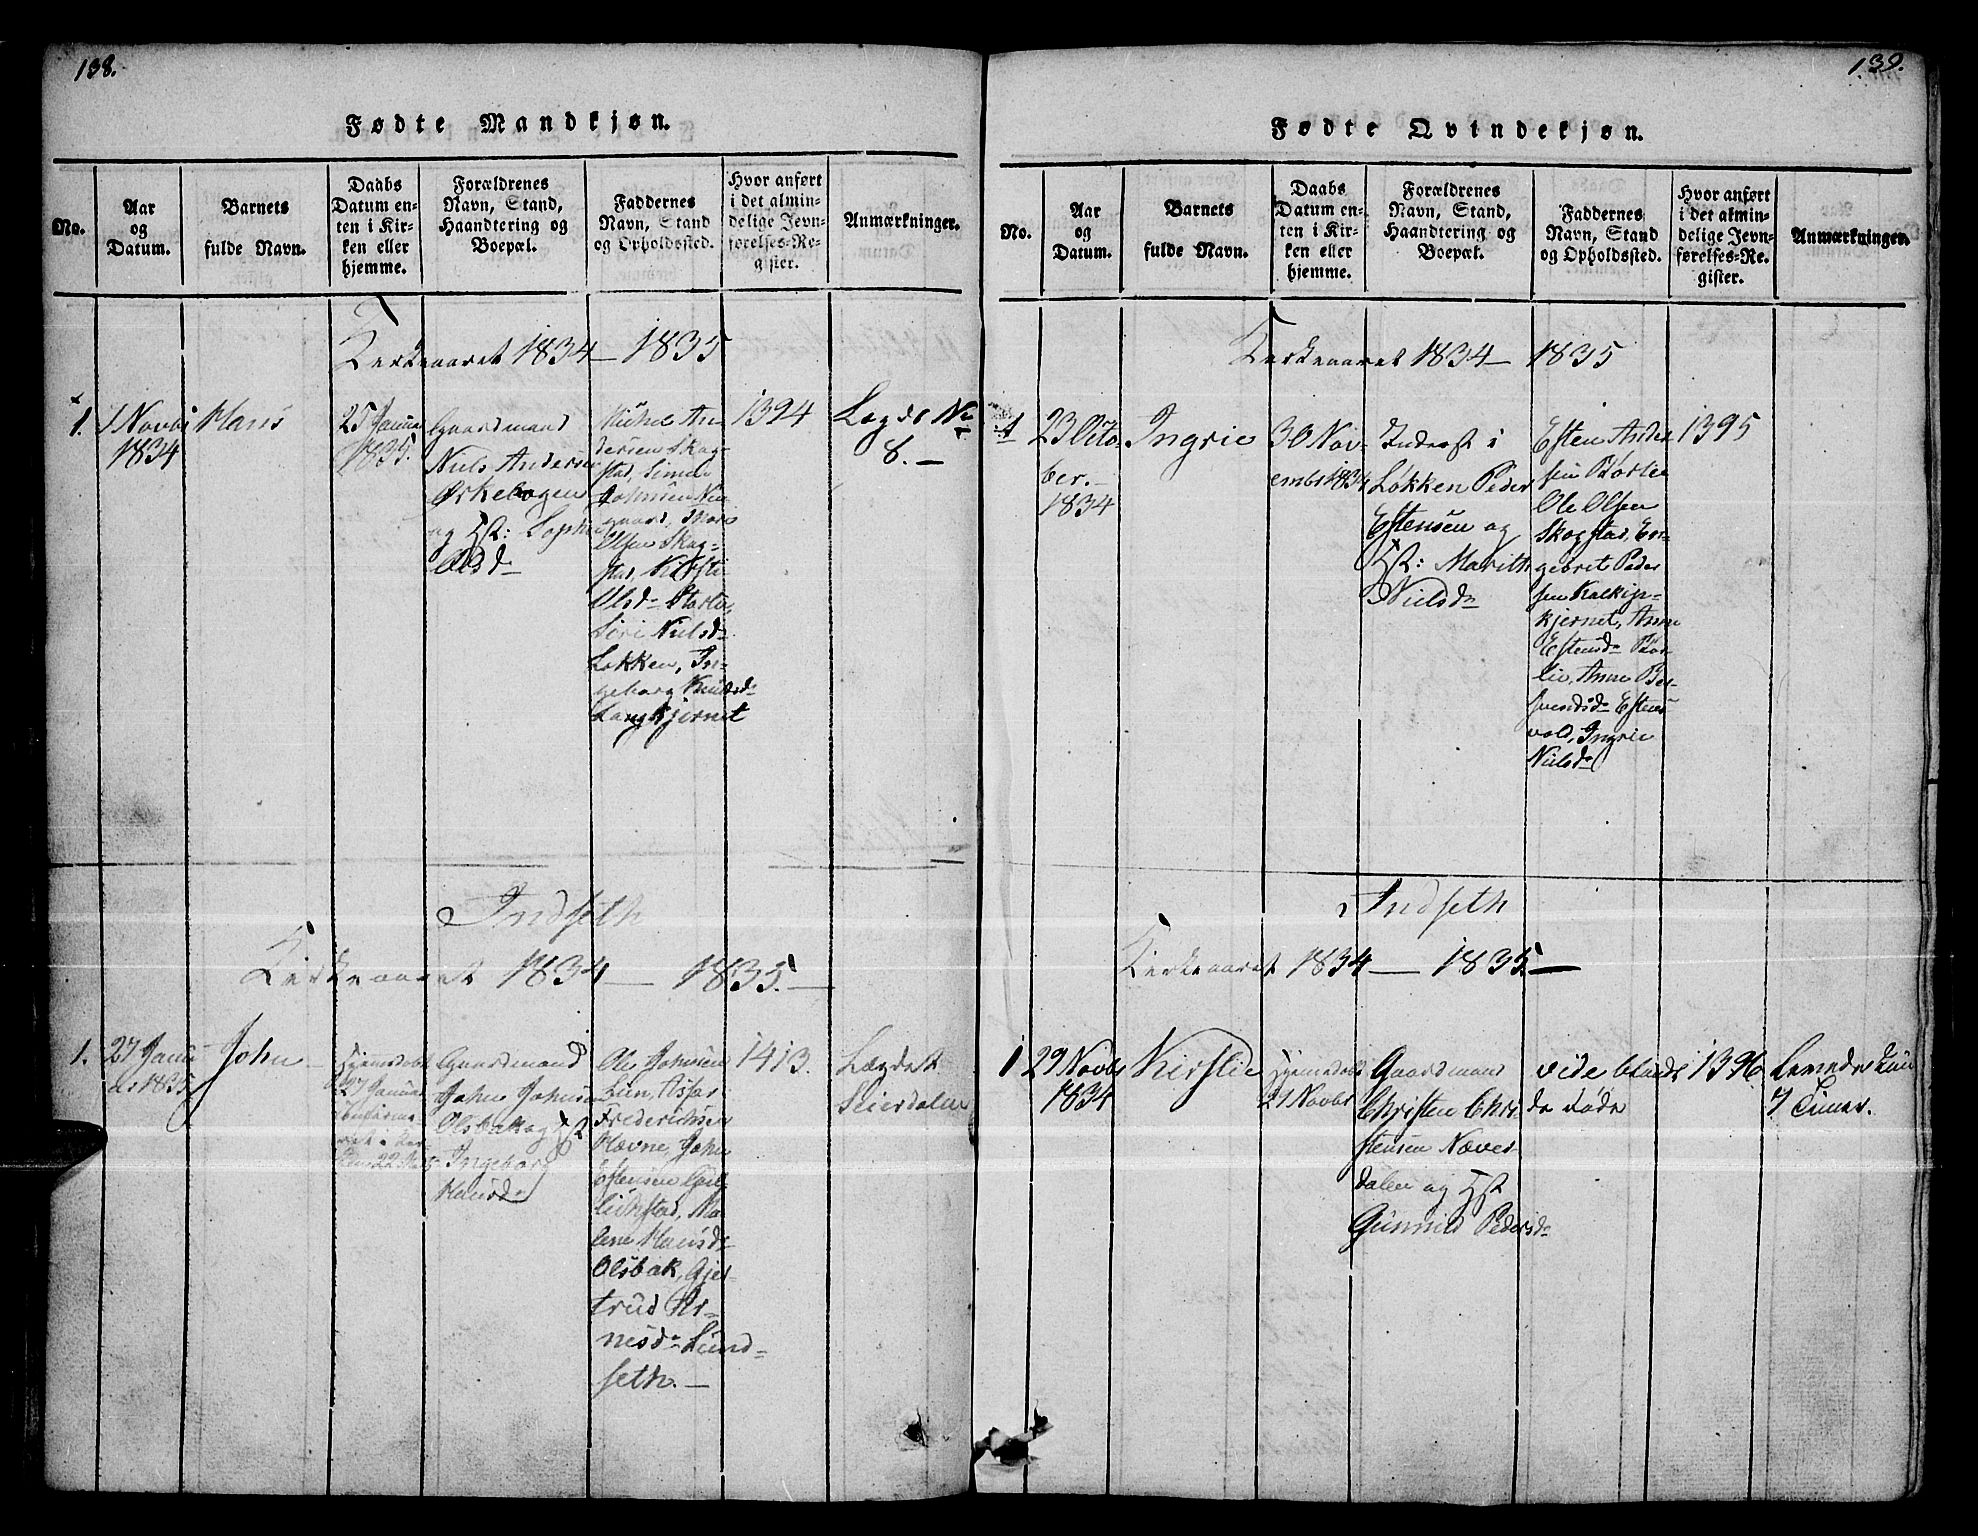 138.
Fødte Mandkjøn.
No.
Aar
og
Datum.
Barnets
fulde Navn.
Daabs
Datum en-
ten i Kir-
ken eller
hjemme.
Forældrenes
Navn, Stand,
Haandtering og
Boepæl.
Faddernes
Navn, Stand
og Opholdssted.
Hvor anført
i det almin-
delige Jevn-
førelses-Re-
gister.
Anmærkninger.
Kirkeaaret 1834 — 1835
1.
Novbr
1834
Hans
25 Januar
1835.
Gaardmand
Niels Andersen
Ørkehogen
og H: Sophie
Olsd
Michel An-
dersen Skog-
stad, Simen
Johnsen Nie-
gaard, Mari
Olsen Skog-
stad, Kirsti
Olsd
Siri Nielsd
Løkken, In-
geborg Knudsd
Langkjernet
1394
Lægds No
8. —
Indseth
Kirkeaaret 1834 — 1835. —
1.
27 Janu
ar 1835
John
Hjemdøbt
27 Januar
22 Marts
Gaardmand
John Johnsen
Olsbak og
Ingeborg
Hansd
Ole Johnsen
Lien,
Frederichsen
Havne, John
Estensen
Malene Hansd
Olsbak, Gjer-
trud Ar-
nesd Lund-
seth. —
1413.
Lægdet
139.
Fødte Qvindekjøn.
No.
Aar
og
Datum.
Barnets
fulde Navn.
Daabs
Datum en-
ten i Kir-
ken eller
hjemme.
Forældrenes
Navn, Stand,
Haandtering og
Boepæl.
Faddernes
Navn, Stand
og Opholdssted.
Hvor anført
i det almin-
delige Jevn-
førelses-Re-
gister.
Anmærkninger.
Kirkeaaret 1834 — 1835
1
23 Octo
ber. —
1834
Ingrie
30 Nov-
embr 1834
Inderst i
Løkken Peder
Estensen og
H: Marith
Nielsd
Esten Ander
sen
Ole Olsen
Skogstad, En-
gebret Peder
sen
kjernet, Anne
Estensd
lie, Anne
vold, Ingrie
Nielsd
1395
Indseth
Kirkeaaret 1834 — 1835. —
1
29 Novbr
1834
Kirstie
Hjemdøbt
29 Novbr
Gaardmand
Christen Chri-
stensen Næver-
dalen og
Gunnild Pedersd
vide blandt
de døde
1396
7 Timer.